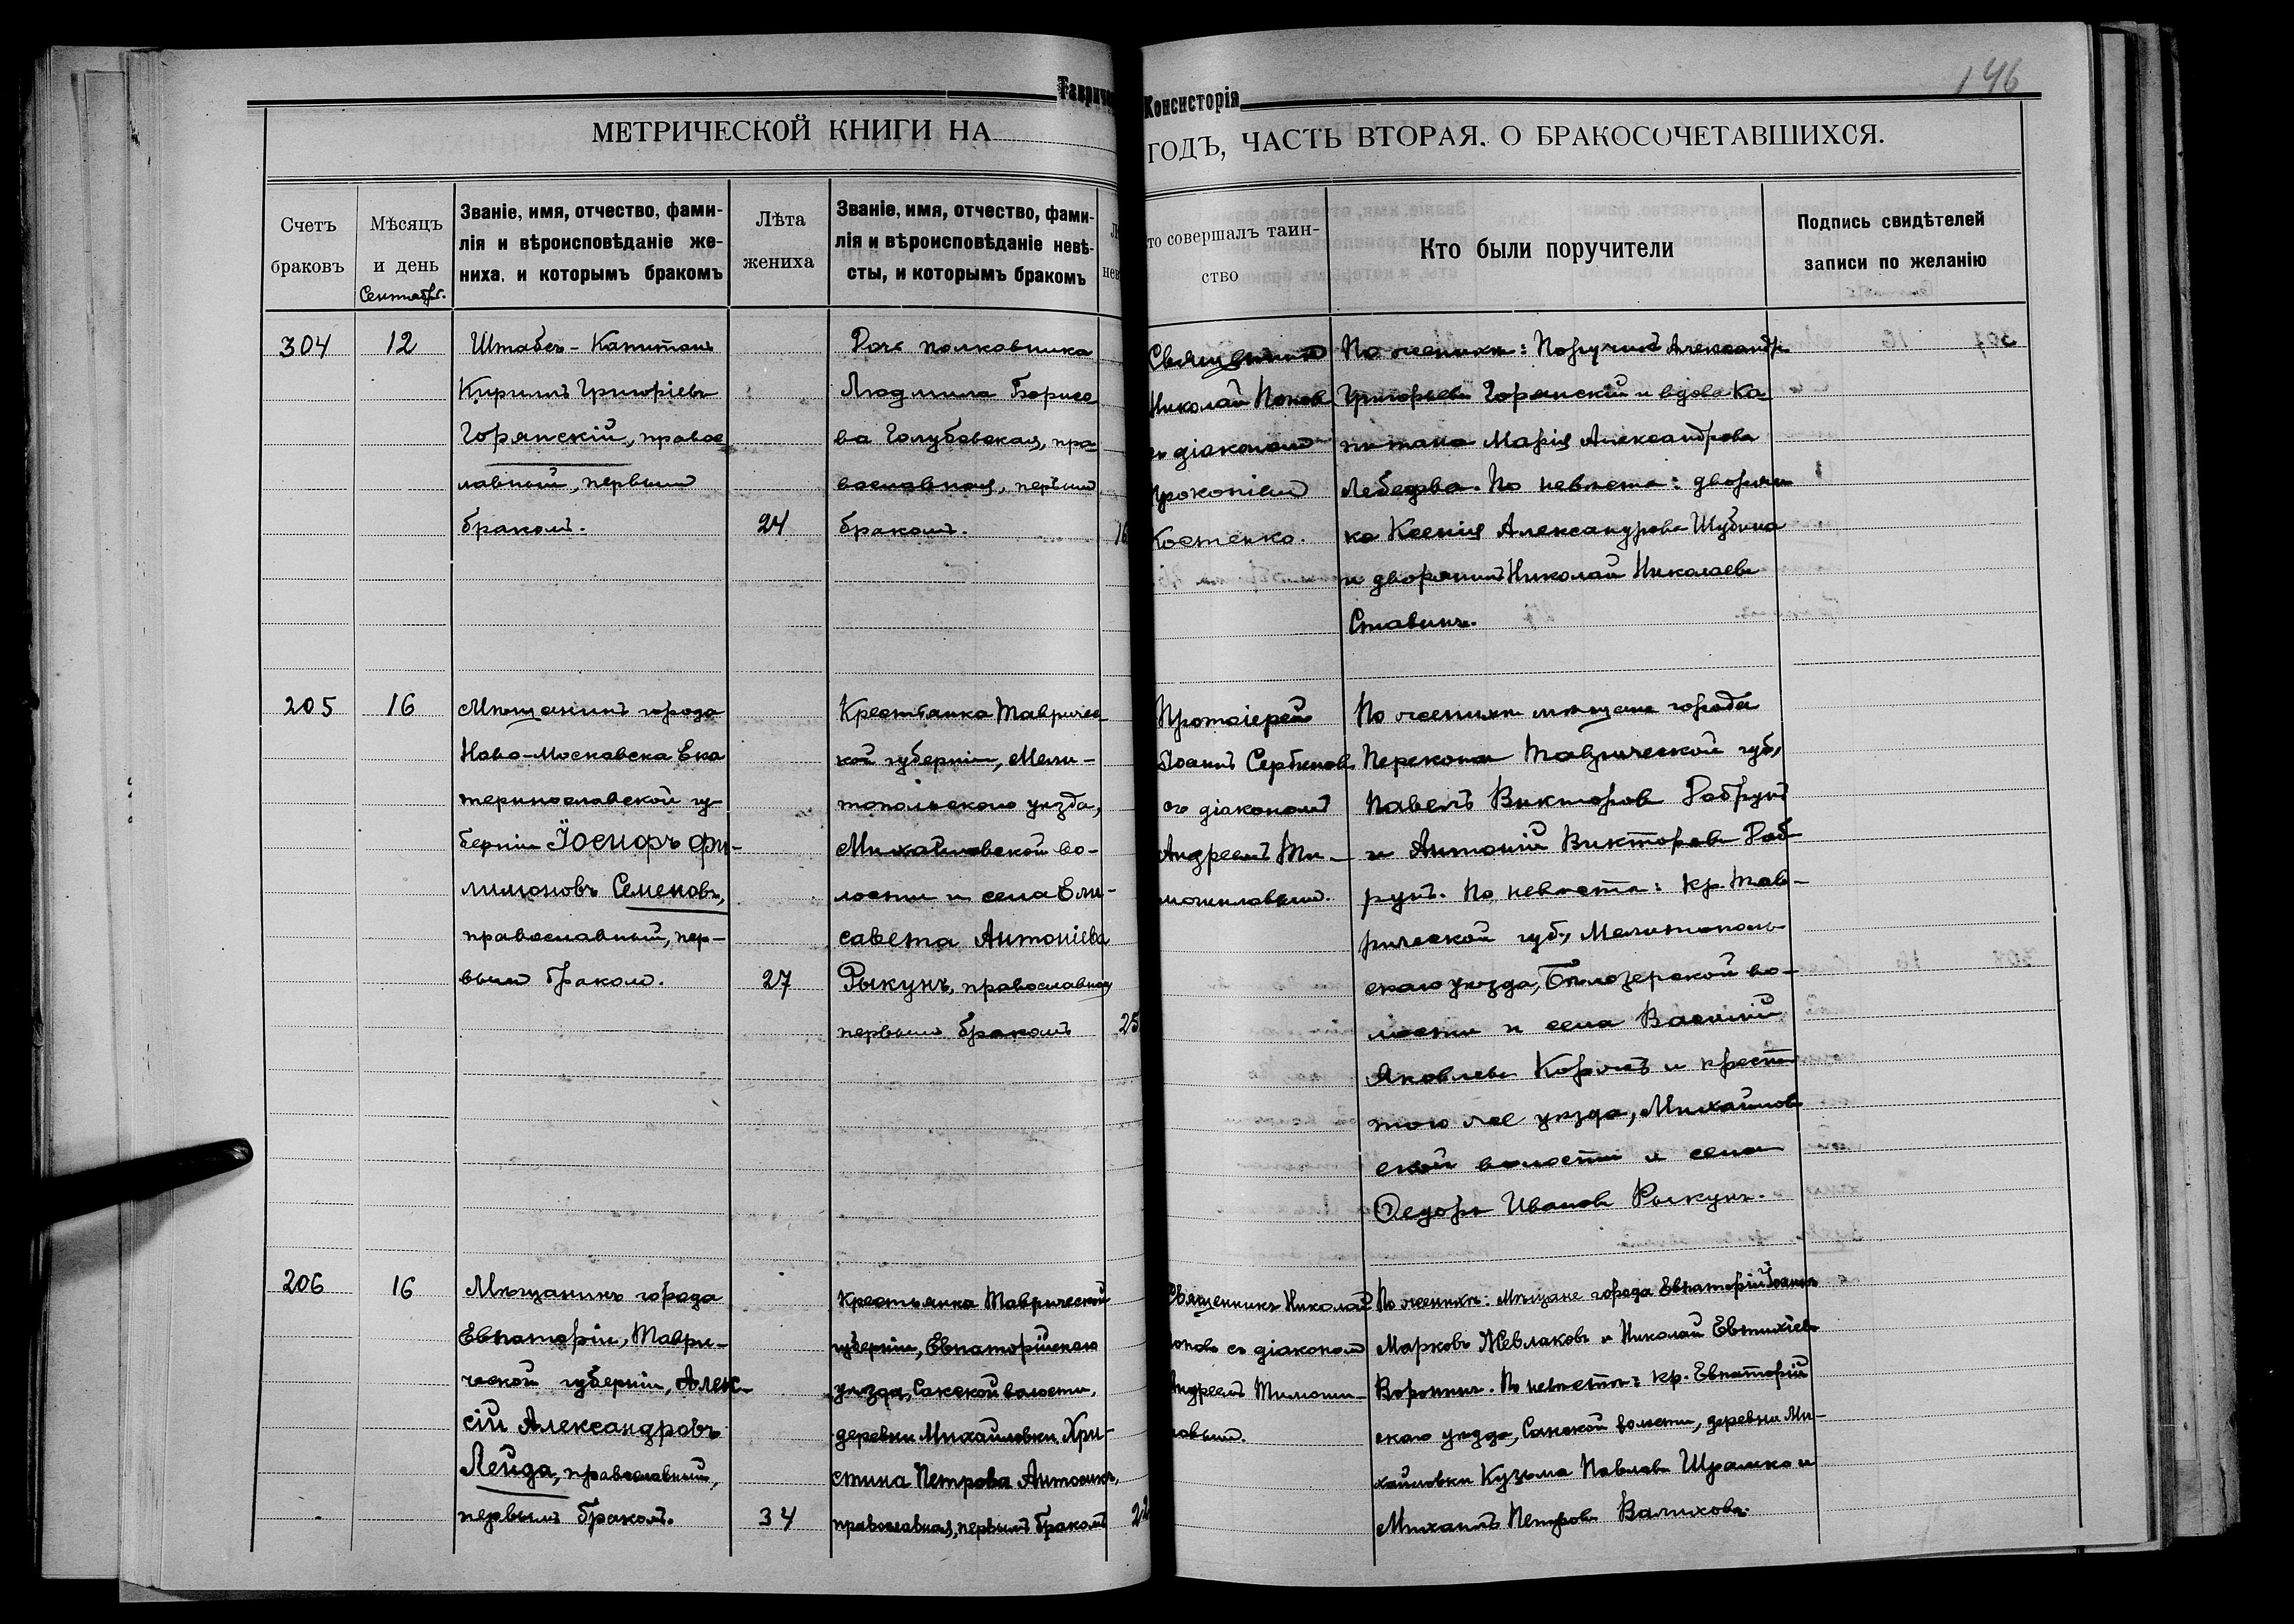 146
Консисторія
МЕТРИЧЕСКОЙ КНИГИ НА
ГОДЪ, ЧАСТЬ ВТОРАЯ, О БРАКОСОЧЕТАВШИХСЯ.
Счетъ
браковъ
Мѣсяцъ
и день
Сентябр.
Званіе, имя, отчество, фами-
лія и вѣроисповѣданіе же-
ниха, и которымъ бракомъ
Лѣта
жениха
Званіе, имя, отчество, фами-
лія и вѣроисповѣданіе невѣ-
сты, и которымъ бракомъ
то совершалъ таин-
ство
Кто были поручители
Подпись свидѣтелей
записи по желанію
304
12
Штабсъ-Капитанъ
Кириллъ Григоріевъ
Горянскій, правос
лавный, первымъ
бракомъ.
24
Дочь полковника
Людмила Борисо
ва Голубовская, пра
вославная, первымъ
бракомъ.
16
Священникъ
Николай Попов
съ діакономъ
Прокопіемъ
Костенко.
По женихѣ: Поручикъ Александр
Григорьевъ Горянскій и вдова Ка
питана Марія Александрова
Лебедева. По невѣстѣ: дворян
ка Ксенія Александрова Шубина
и дворянинъ Николай Николаевъ
Ставинъ.
205
16
Мѣщанинъ города
Ново-Московска Ека
теринославской гу
берніи Іосифъ Фи-
лимоновъ Семеновъ,
православный, пер-
вымъ бракомъ.
27
Крестьянка Тавричес
кой губерніи, Мели-
топольскаго уѣзда,
Михайловской во-
лости и села Ели-
савета Антоніева
Рыкунъ, православная
первымъ бракомъ
25
Протоіерей
Іоаннъ Сербиновъ
съ діакономъ
Андреемъ Ти-
мошлавымъ.
По женихѣ мѣщане города
Перекопа Таврической губ,
Павелъ Викторовъ Робрукъ
и Антоній Викторовъ Роб
рукъ. По невѣстѣ: кр. Тав-
рической губ., Мелитополь
скаго уѣзда, Бѣлозерской во-
лости и села Василій
Яковлевъ Коржъ и крест
того же уѣзда, Михайлов
ской волости и села
Ѳедоръ Ивановъ Рыкунъ.
206
16
Мѣщанинъ города
Евпаторіи, Таври-
ческой губерніи, Алек-
сій Александровъ
Лейда, православный,
первымъ бракомъ.
34
Крестьянка Таврической
губерніи, Евпаторійскаго
уѣзда, Сакской волости,
деревни Михайловки, Хри-
стина Петрова Антоникъ,
православная, первымъ бракомъ
22
Священникъ Николай
оповъ съ діакономъ
Андреемъ Тимош-
лавымъ.
По женихѣ: Мѣщане города Евпаторіи Іоаннъ
Марковъ Жевлаковъ и Николай Евтихіевъ
Воронинъ. По невѣстѣ: кр. Евпаторій
скаго уѣзда, Сакской волости, деревни Ми-
хайловки Кузьма Павловъ Шрамко и
Михаилъ Петровъ Валиховъ.